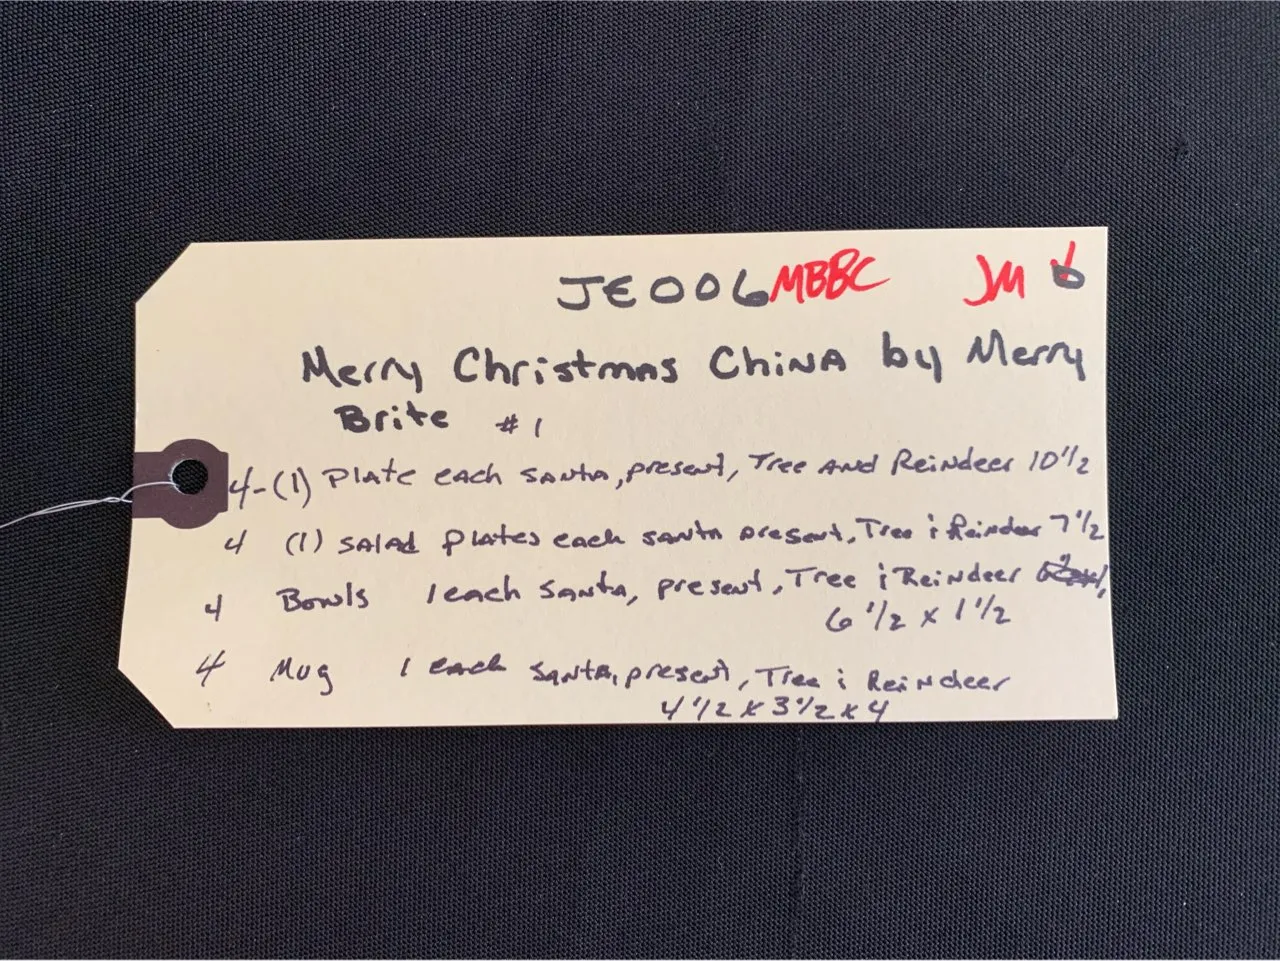 JE006 MBBC JM 6
Merry Christmas China by Merry
Brite #1
4-(1) Plate each Santa, present, Tree And Reindeer 10 1/2
4 (1) salad plates each santa present, Tree & Reindeer 7 1/2
4 Bowls 1 each Santa, present, Tree & Reindeer
6 1/2 x 1 1/2
4 Mug 1 each Santa, present, Tree & Reindeer
4 1/2 x 3 1/2 x 4